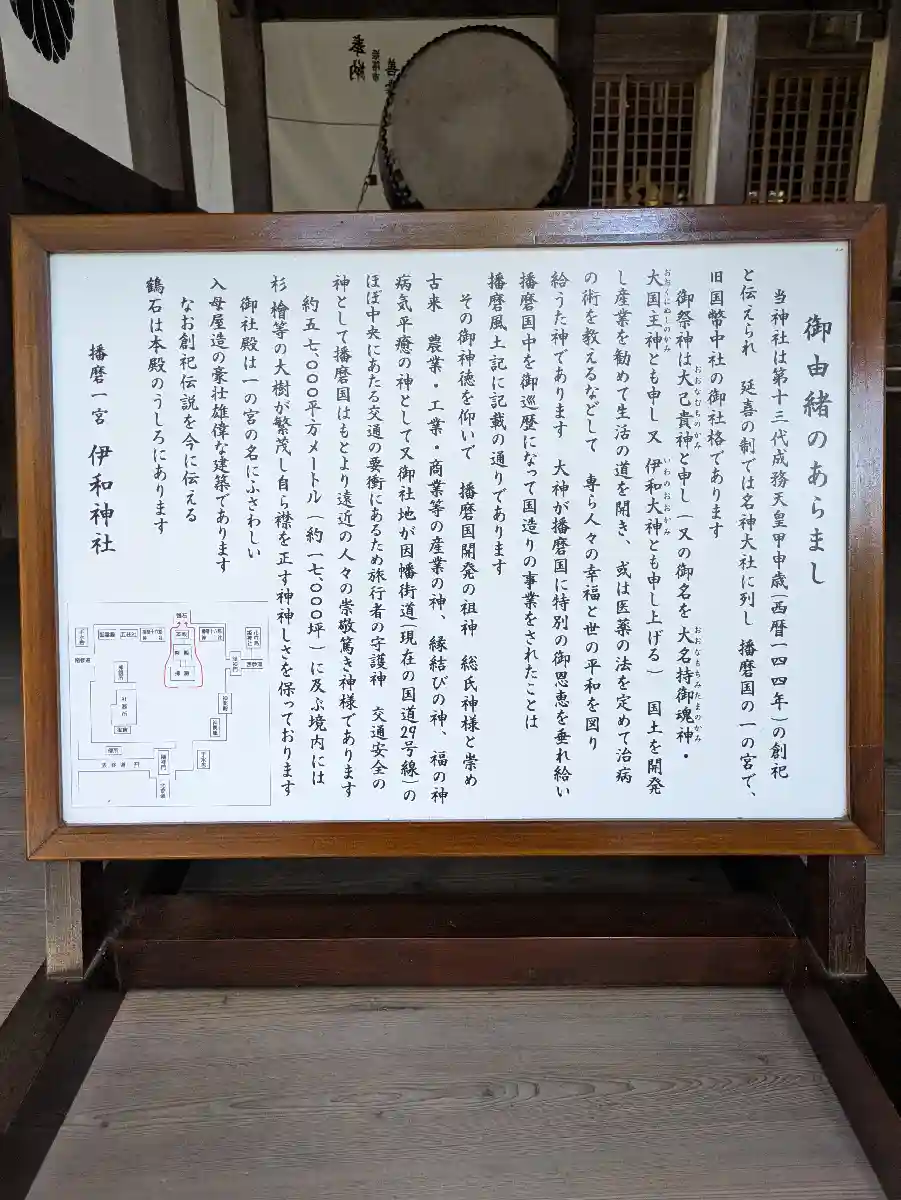 御由緒のあらまし
当神社は第十三代成務天皇甲申歳(西暦一四四年)の創祀
と伝えられ 延喜の制では名神大社に列し 播磨国の一の宮で、
旧国幣中社の御社格であります
御祭神は大己貴神と申し(又の御名を 大名持御魂神・
おおなむちのかみ
おおなもちみたまのかみ
大国主神とも申し 又 伊和大神とも申し上げる) 国土を開発
おおくにぬしのかみ
いわのおおかみ
し産業を勧めて生活の道を開き、或は医薬の法を定めて治病
の術を教えるなどして 専ら人々の幸福と世の平和を図り
給うた神であります 大神が播磨国に特別の御恩恵を垂れ給い
播磨国中を御巡歴になって国造りの事業をされたことは
播磨風土記に記載の通りであります
その御神徳を仰いで 播磨国開発の祖神 総氏神様と崇め
古来 農業・工業・商業等の産業の神、縁結びの神、福の神
病気平癒の神として又御社地が因幡街道(現在の国道29号線)の
ほぼ中央にあたる交通の要衝にあるため旅行者の守護神 交通安全の
神として播磨国はもとより遠近の人々の崇敬篤き神様であります
約五七、〇〇〇平方メートル(約一七、〇〇〇坪)に及ぶ境内には
杉 檜等の大樹が繁茂し自ら襟を正す神神しさを保っております
御社殿は一の宮の名にふさわしい
入母屋造の豪壮雄偉な建築であります
なお創祀伝説を今に伝える
鶴石は本殿のうしろにあります
播磨一宮 伊和神社
鶴石
本殿
幣殿
拝殿
社務所
奉納